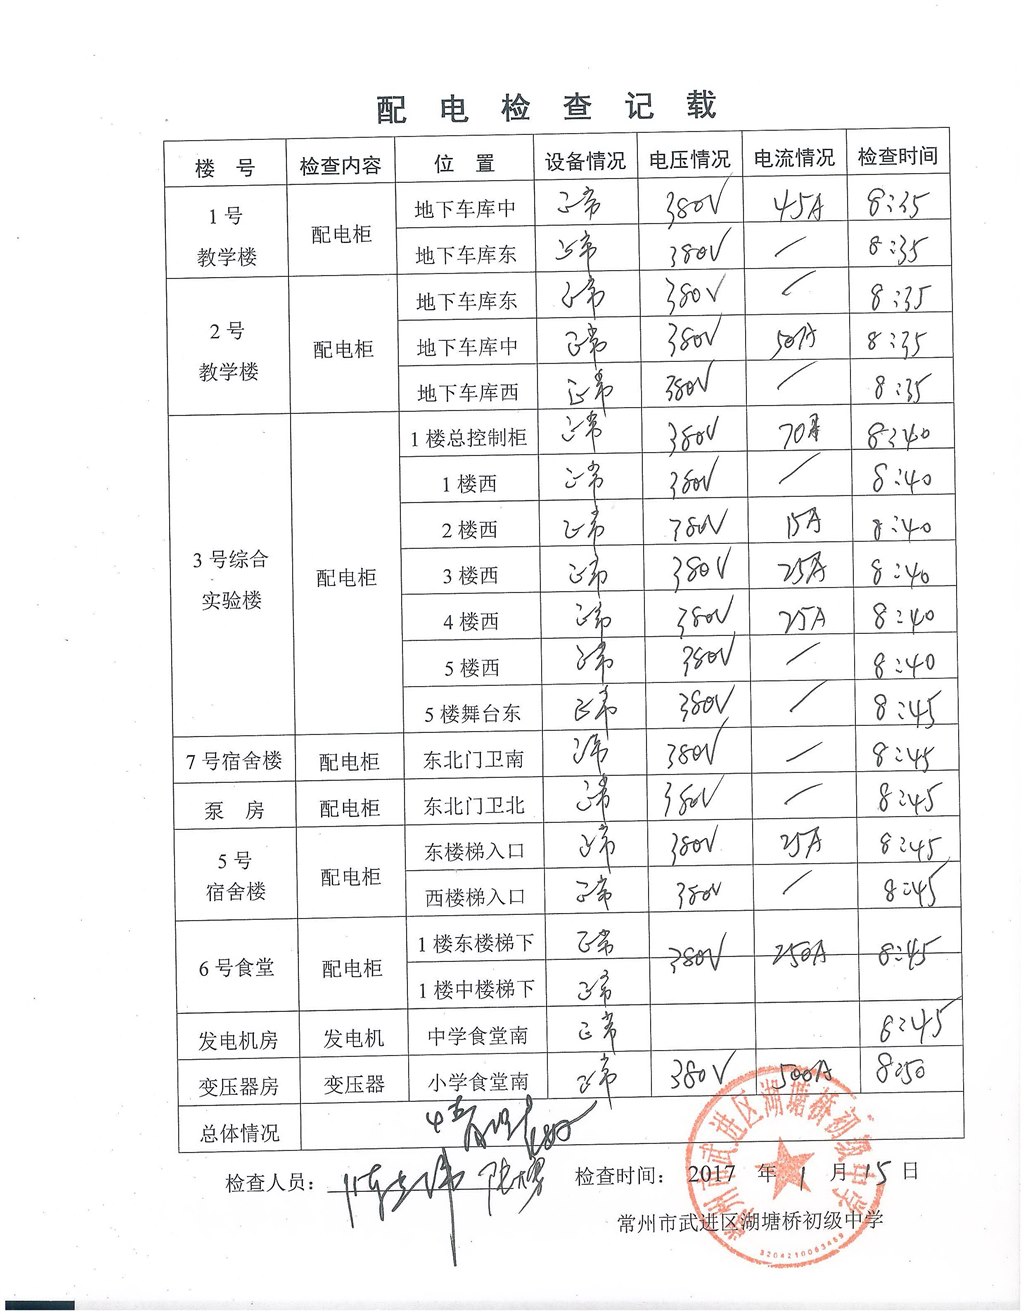 配 电 检 查 记 载
楼 号 检查内容 位 置 设备情况 电压情况 电流情况 检查时间
1 号 教学楼 配电柜 地下车库中 正常 380V 45A 8:35
地下车库东 正常 380V / 8:35
2 号 教学楼 配电柜 地下车库东 正常 380V / 8:35
地下车库中 正常 380V 50A 8:35
地下车库西 正常 380V / 8:35
3 号综合 实验楼 配电柜 1 楼总控制柜 正常 380V 70A 8:40
1 楼西 正常 380V / 8:40
2 楼西 正常 380V 15A 8:40
3 楼西 正常 380V 25A 8:40
4 楼西 正常 380V 25A 8:40
5 楼西 正常 380V / 8:40
5 楼舞台东 正常 380V / 8:45
7 号宿舍楼 配电柜 东北门卫南 正常 380V / 8:45
泵 房 配电柜 东北门卫北 正常 380V / 8:45
5 号 宿舍楼 配电柜 东楼梯入口 正常 380V 25A 8:45
西楼梯入口 正常 380V / 8:45
6 号食堂 配电柜 1 楼东楼梯下 正常 380V 250A 8:45
1 楼中楼梯下 正常
发电机房 发电机 中学食堂南 正常 8:45
变压器房 变压器 小学食堂南 正常 380V 500A 8:50
总体情况
检查人员: 检查时间: 2017 年 1 月 15 日
常州市武进区湖塘桥初级中学
常州市武进区湖塘桥初级中学
3204210063469